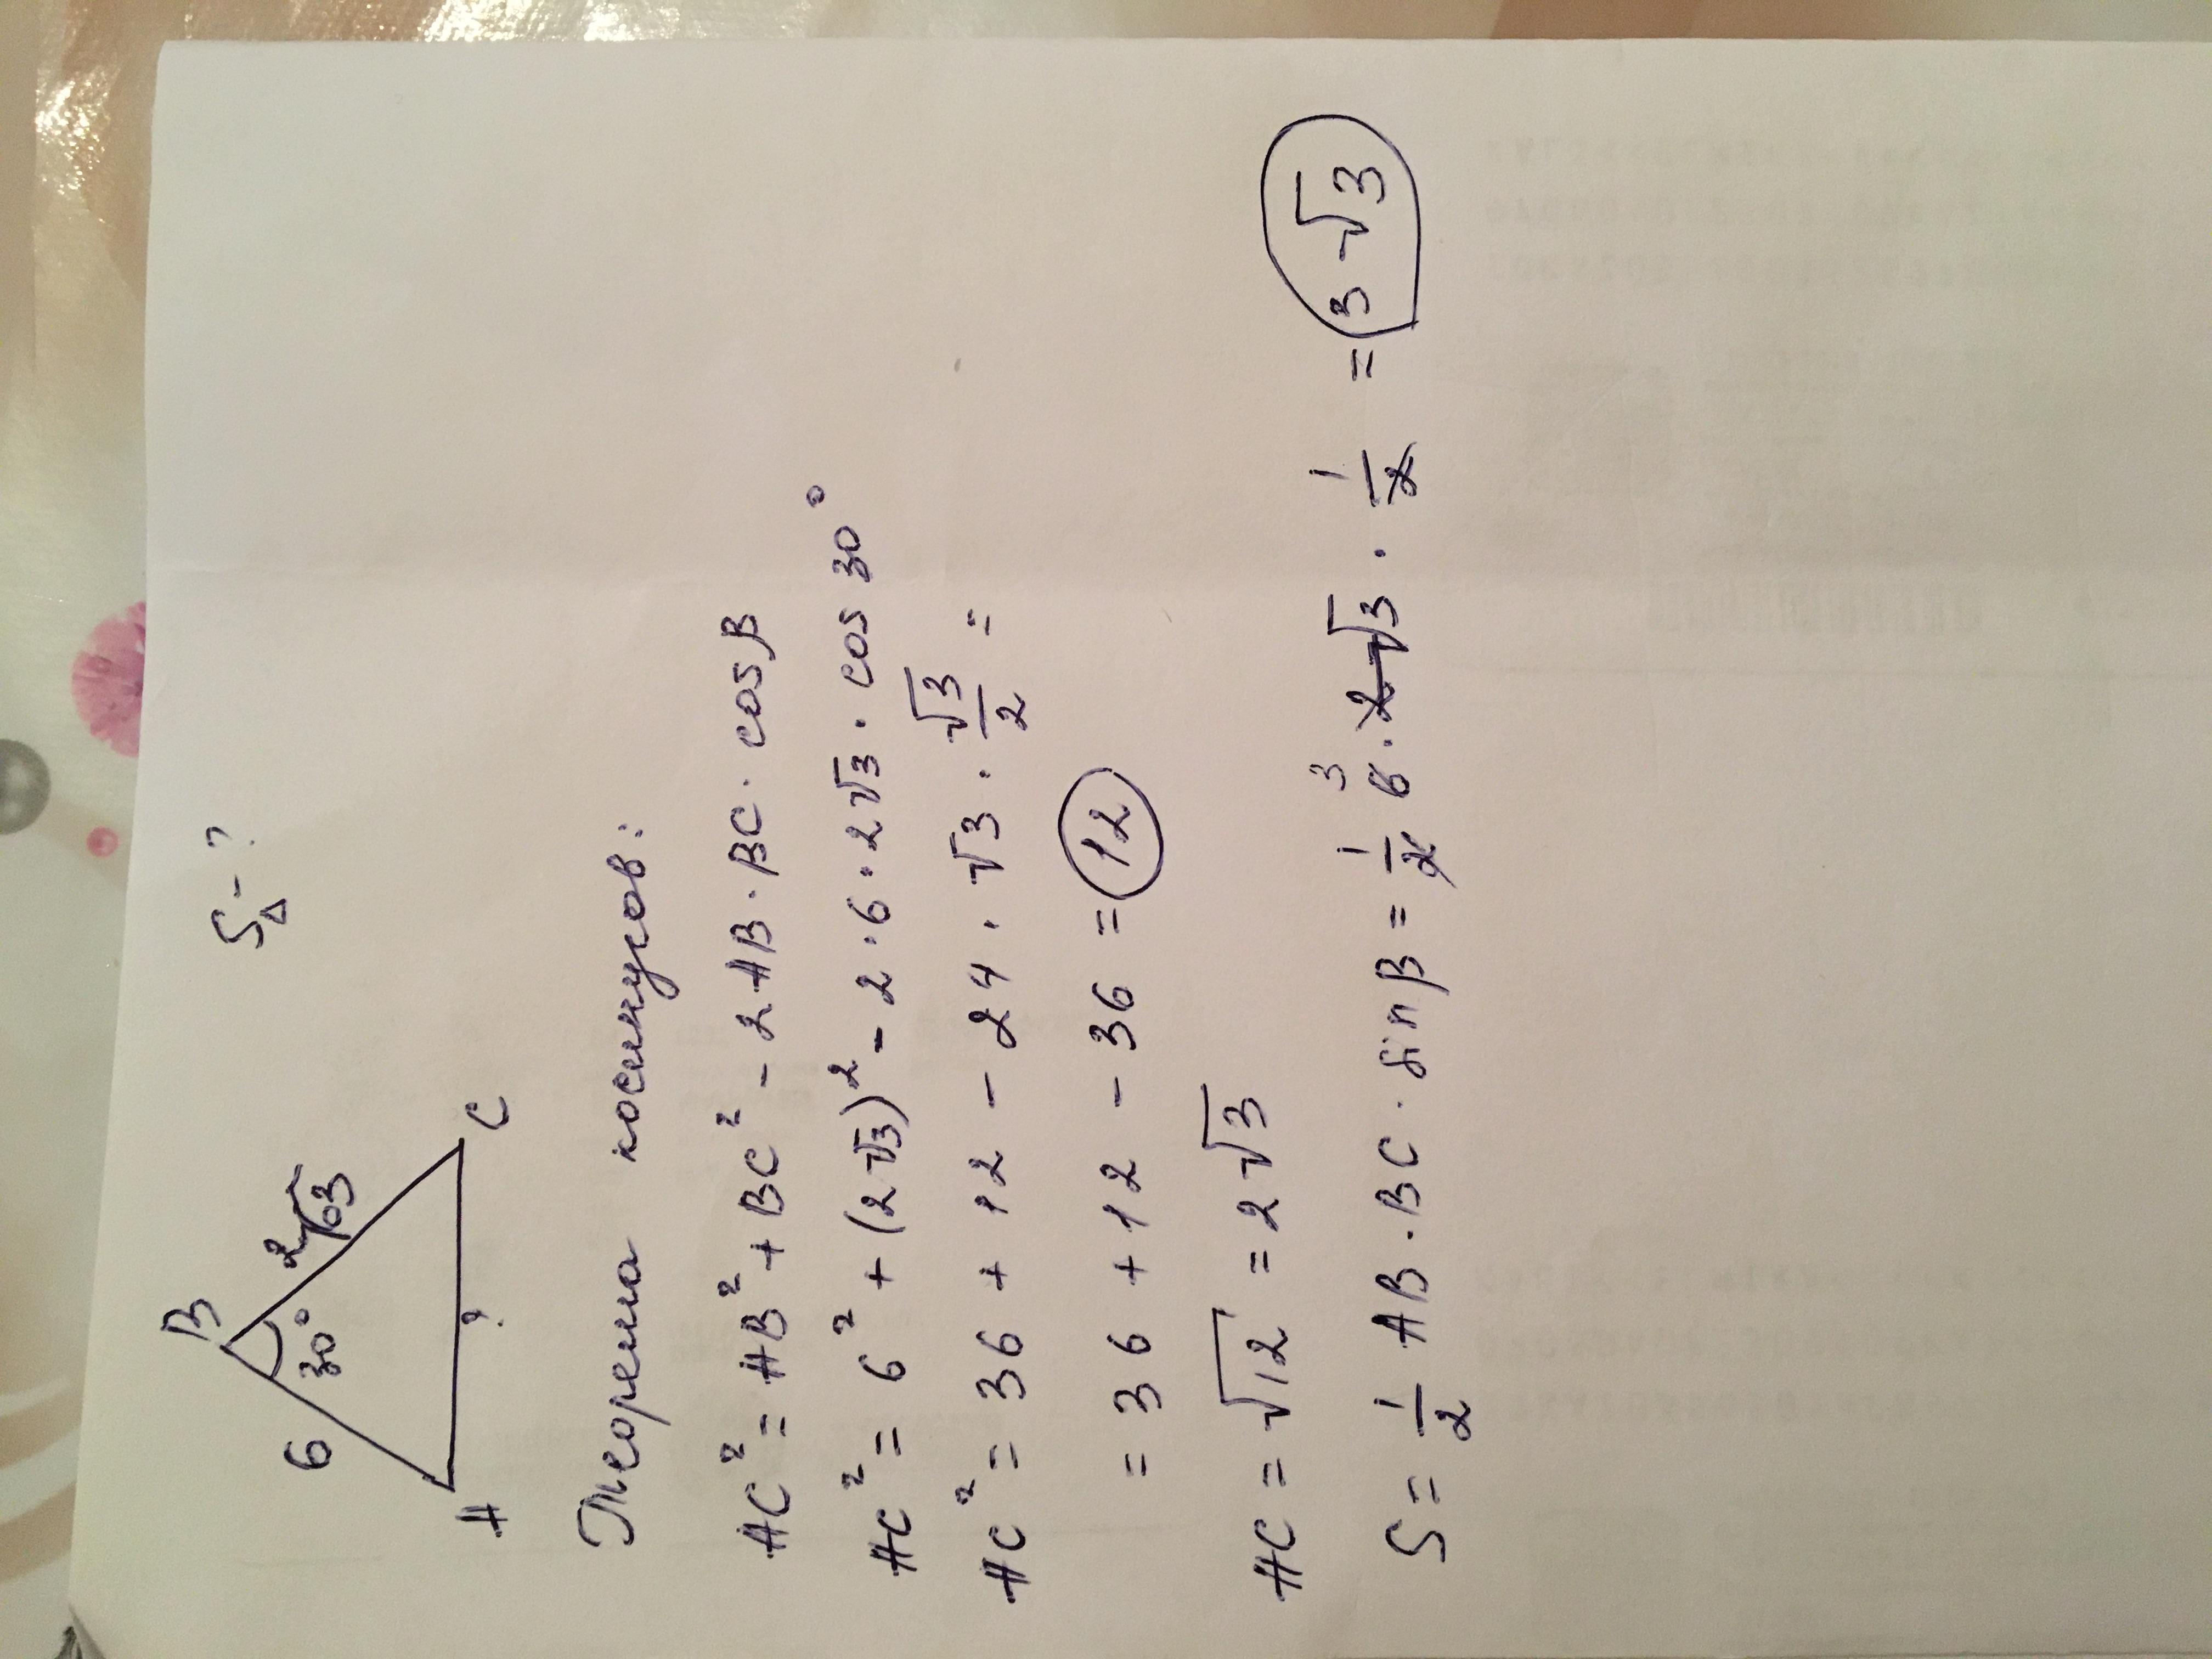 S△ - ?
B
6
30°
2√3
A
?
C
Теорема косинусов:
AC² = AB² + BC² - 2AB · BC · cosβ
AC² = 6² + (2√3)² - 2 · 6 · 2√3 · cos 30°
AC² = 36 + 12 - 24 · √3 · √3/2 =
= 36 + 12 - 36 = 12
AC = √12 = 2√3
S = 1/2 AB · BC · sinβ = 1/2 6 3 · 2√3 · 1/2 = 3√3